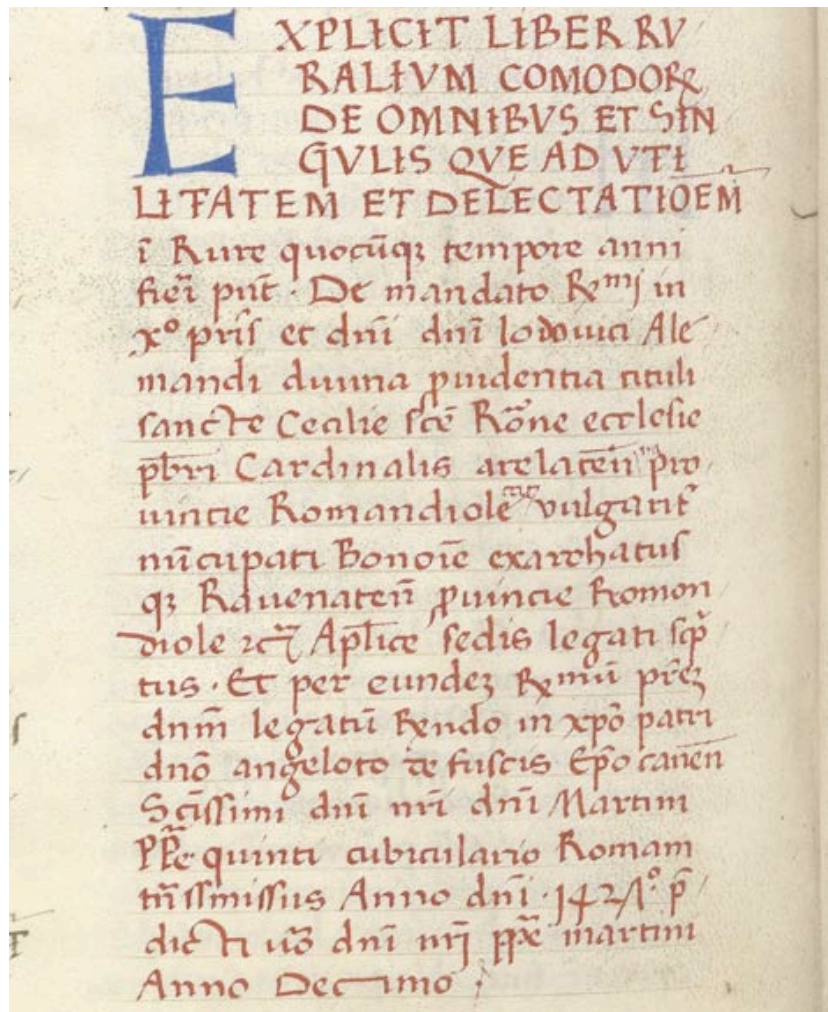 EXPLICIT LIBER RU
RALIUM COMODOꝜ
DE OMNIBVS ET SIN
GVLIS QVE AD VTI
LITATEM ET DELECTATIOEM̄
ī Rure quocūqꝫ tempore anni
fieri pn̄t · De mandato Rᵐⁱ in
xº pr̄is et dn̄i dn̄i lodouici Ale
mandi diuina ꝓuidentia tituli
sancte Cecilie sc̄e Ro᷒ne ecclesie
pb̄ri Cardinalis arelateñ pro
uincie Romandiole vulgarit᷑
nūcupati Bononīe exarchatus
qꝫ Rauenateñ ꝓuincie Romon
diole Apl̄ice sedis legati scp̄
tus · Et per eundeꝫ Rᵐū pr̄eꝫ
dnm̄ legatū Rendo in xp̄o patri
dn̄o angeloto de fuscis Ep̄o caneñ
Sc̄issimi dn̄i nr̄i dn̄i Martini
PP̄e quinti cubiculario Romam
tn̄ssmissus Anno dn̄i · p̄
dicti u̅o dn̄i nr̄j pp̄e martini
Anno Decimo